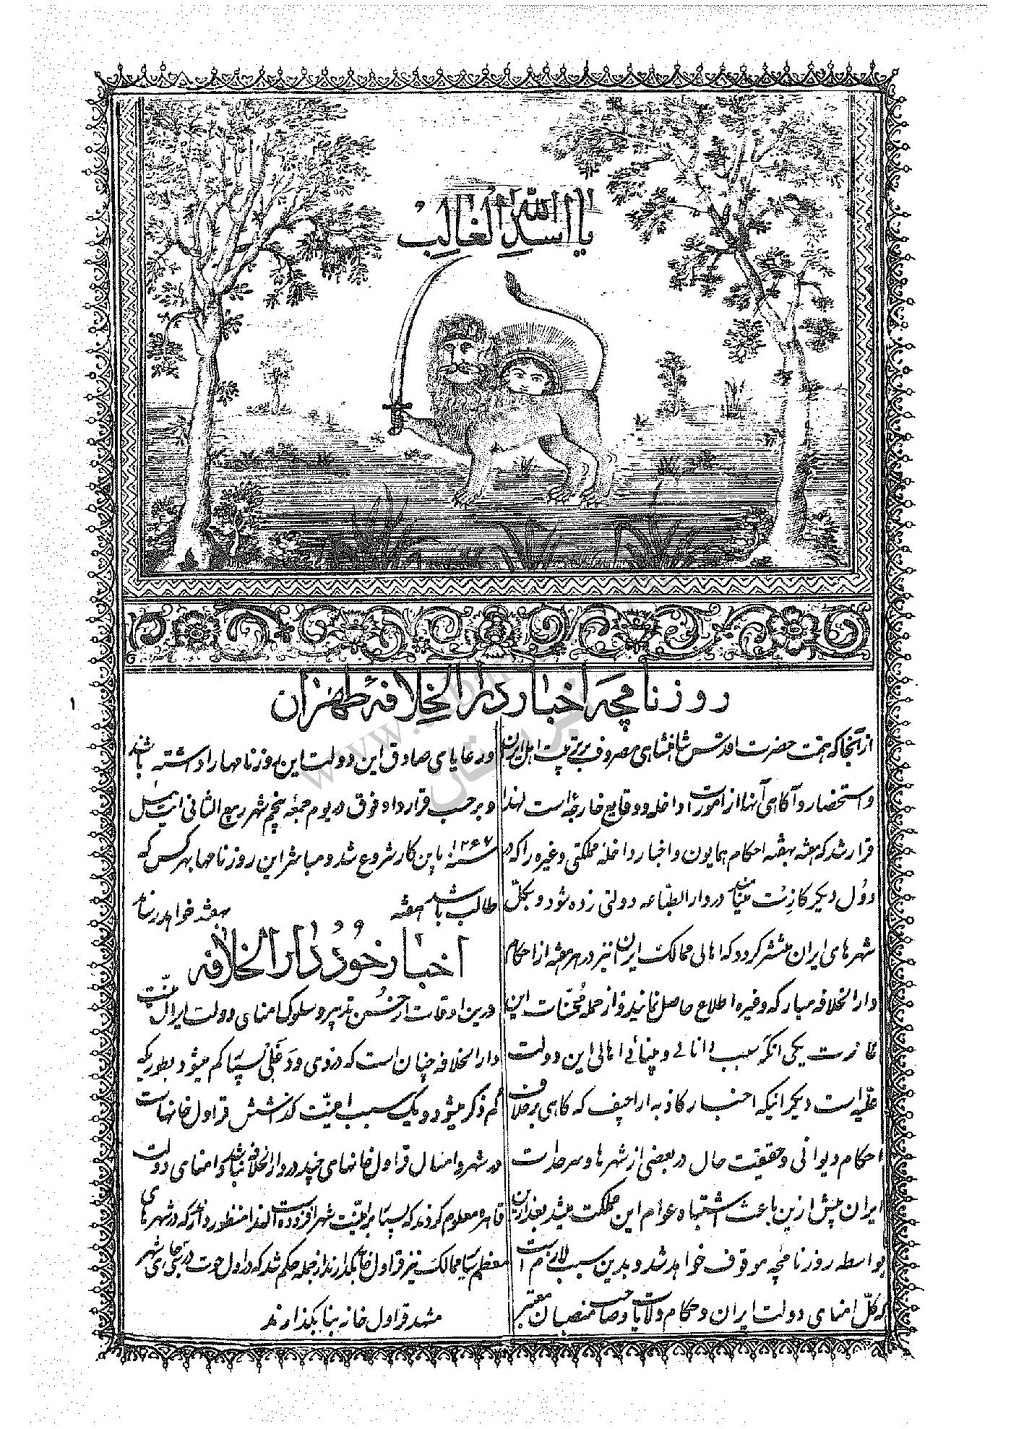 یا اسد الله الغالب
روزنامچه اخبار دار الخلافه طهران
۱
از آنجا که همت حضرت اقدس شاهنشاهی مصروف بر تربیت اهل ایران
و استحضار و آگاهی آنها از امورات داخله و وقایع خارجه است لهذا
قرار شد که هفته بهفته احکام همایون و اخبار داخله مملکتی و غیره را که در
دول دیگر کازت مینامند در دار الطباعه دولتی زده شود و بکل
شهرهای ایران منتشر گردد که اهالی ممالک ایران نیز در هر هفته از احکام
دار الخلافه مبارکه و غیره اطلاع حاصل نمایند و از جمله محسنات این
کازت یکی آنکه سبب دانائی و بینائی اهالی این دولت
علیه است دیگر اینکه اخبار کاذبه اراجیف که گاهی برخلاف
احکام دیوانی و حقیقت حال در بعضی از شهرها و سرحدات
ایران پیش ازین باعث اشتباه عوام این مملکت میشد بعد ازین
بواسطه روزنامچه موقوف خواهد شد و بدین سبب لازم است
که کل امنای دولت ایران و حکام ولایات و صاحب منصبان معتبر
و رعایای صادق این دولت این روزنامها را داشته باشند
و بر حسب قرارداد فوق در یوم جمعه پنجم شهر ربیع الثانی ایت ئیل
سنه ۱۲۶۷ باین کار شروع شد و مباشر این روزنامها بهر کس که
طالب باشد هفته بهفته خواهد رساند
اخبار خود دار الخلافه
درین اوقات از حسن تدبیر و سلوک امنای دولت ایران امنیت
دار الخلافه چنان است که دزدی و دغلی بسیار کم میشود بطوریکه
کم ذکر میشود و یک سبب امنیت گذاشتن قراول خانهاست
در شهر و امثال قراول خانهای چند در دار الخلافه نباشد و امنای دولت
قاهره معلوم کردند که بسیار بر امنیت شهر افزوده است لهذا منظور دارند که در شهرهای
معظم سایر ممالک نیز قراول خانه بگذارند از جمله حکم شد که در اول حوت در جای شهر
مشهد قراول خانه بنا بگذارند